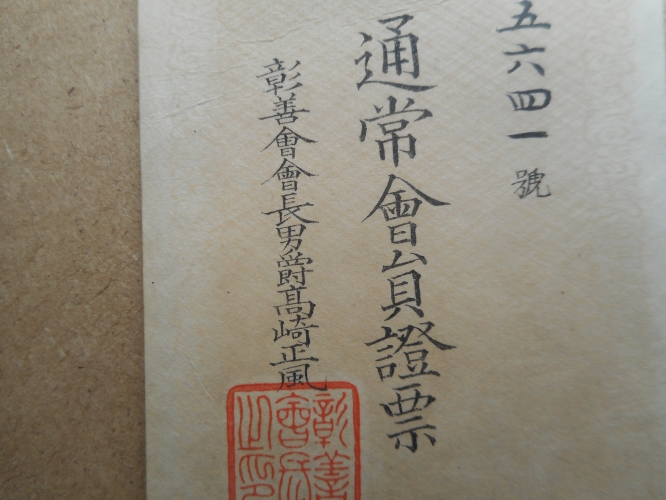 五六四一號
通常會員證票
彰善會會長男爵髙崎正風
彰善
會長
之印